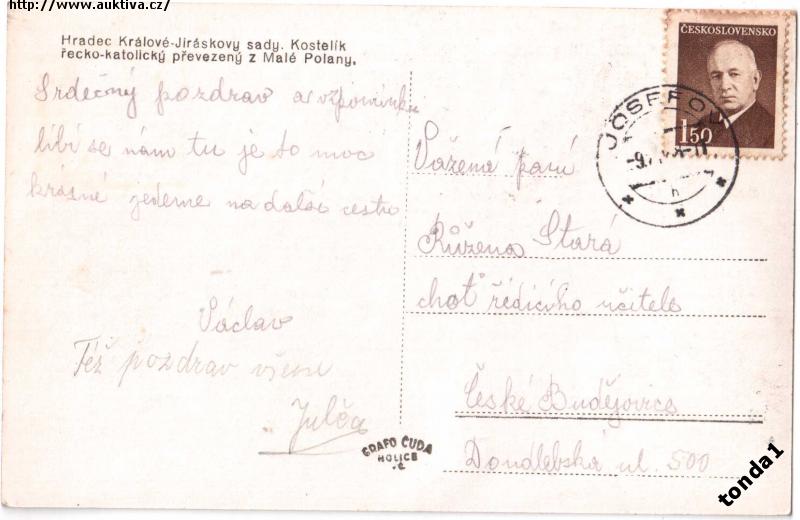 http://www.auktiva.cz/
Hradec Králové-Jiráskovy sady. Kostelík
řecko-katolický převezený z Malé Polany.
Srdečný pozdrav a vzpomínku
líbí se nám tu je to moc
krásné jedeme na další cestu
Václav
Též pozdrav všem
Julča
ČESKOSLOVENSKO
1.50
JOSEFOV
Vážená paní
Růžena Stará
choť řídícího učitele
České Budějovice
Doudlebská ul. 500
GRAFO ČUDA
HOLICE
tonda1